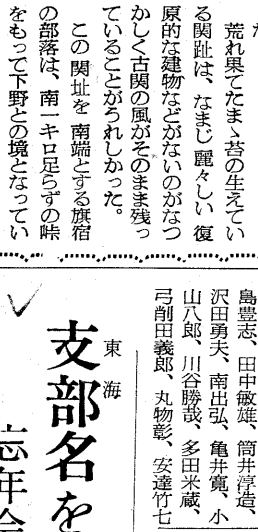 荒れ果てたまゝ苔の生えてい
る関趾は、なまじ麗々しい復
原的な建物などがないのがなつ
かしく古関の風がそのまま残っ
ていることがうれしかった。
この関址を南端とする旗宿
の部落は、南一キロ足らずの峠
をもって下野との境となってい
島豊志、田中敏雄、筒井淳造、
沢田勇夫、南出弘、亀井寛、小
山八郎、川谷勝哉、多田米蔵、
弓削田義郎、丸物彰、安達竹七
東海
支部名を
忘年会